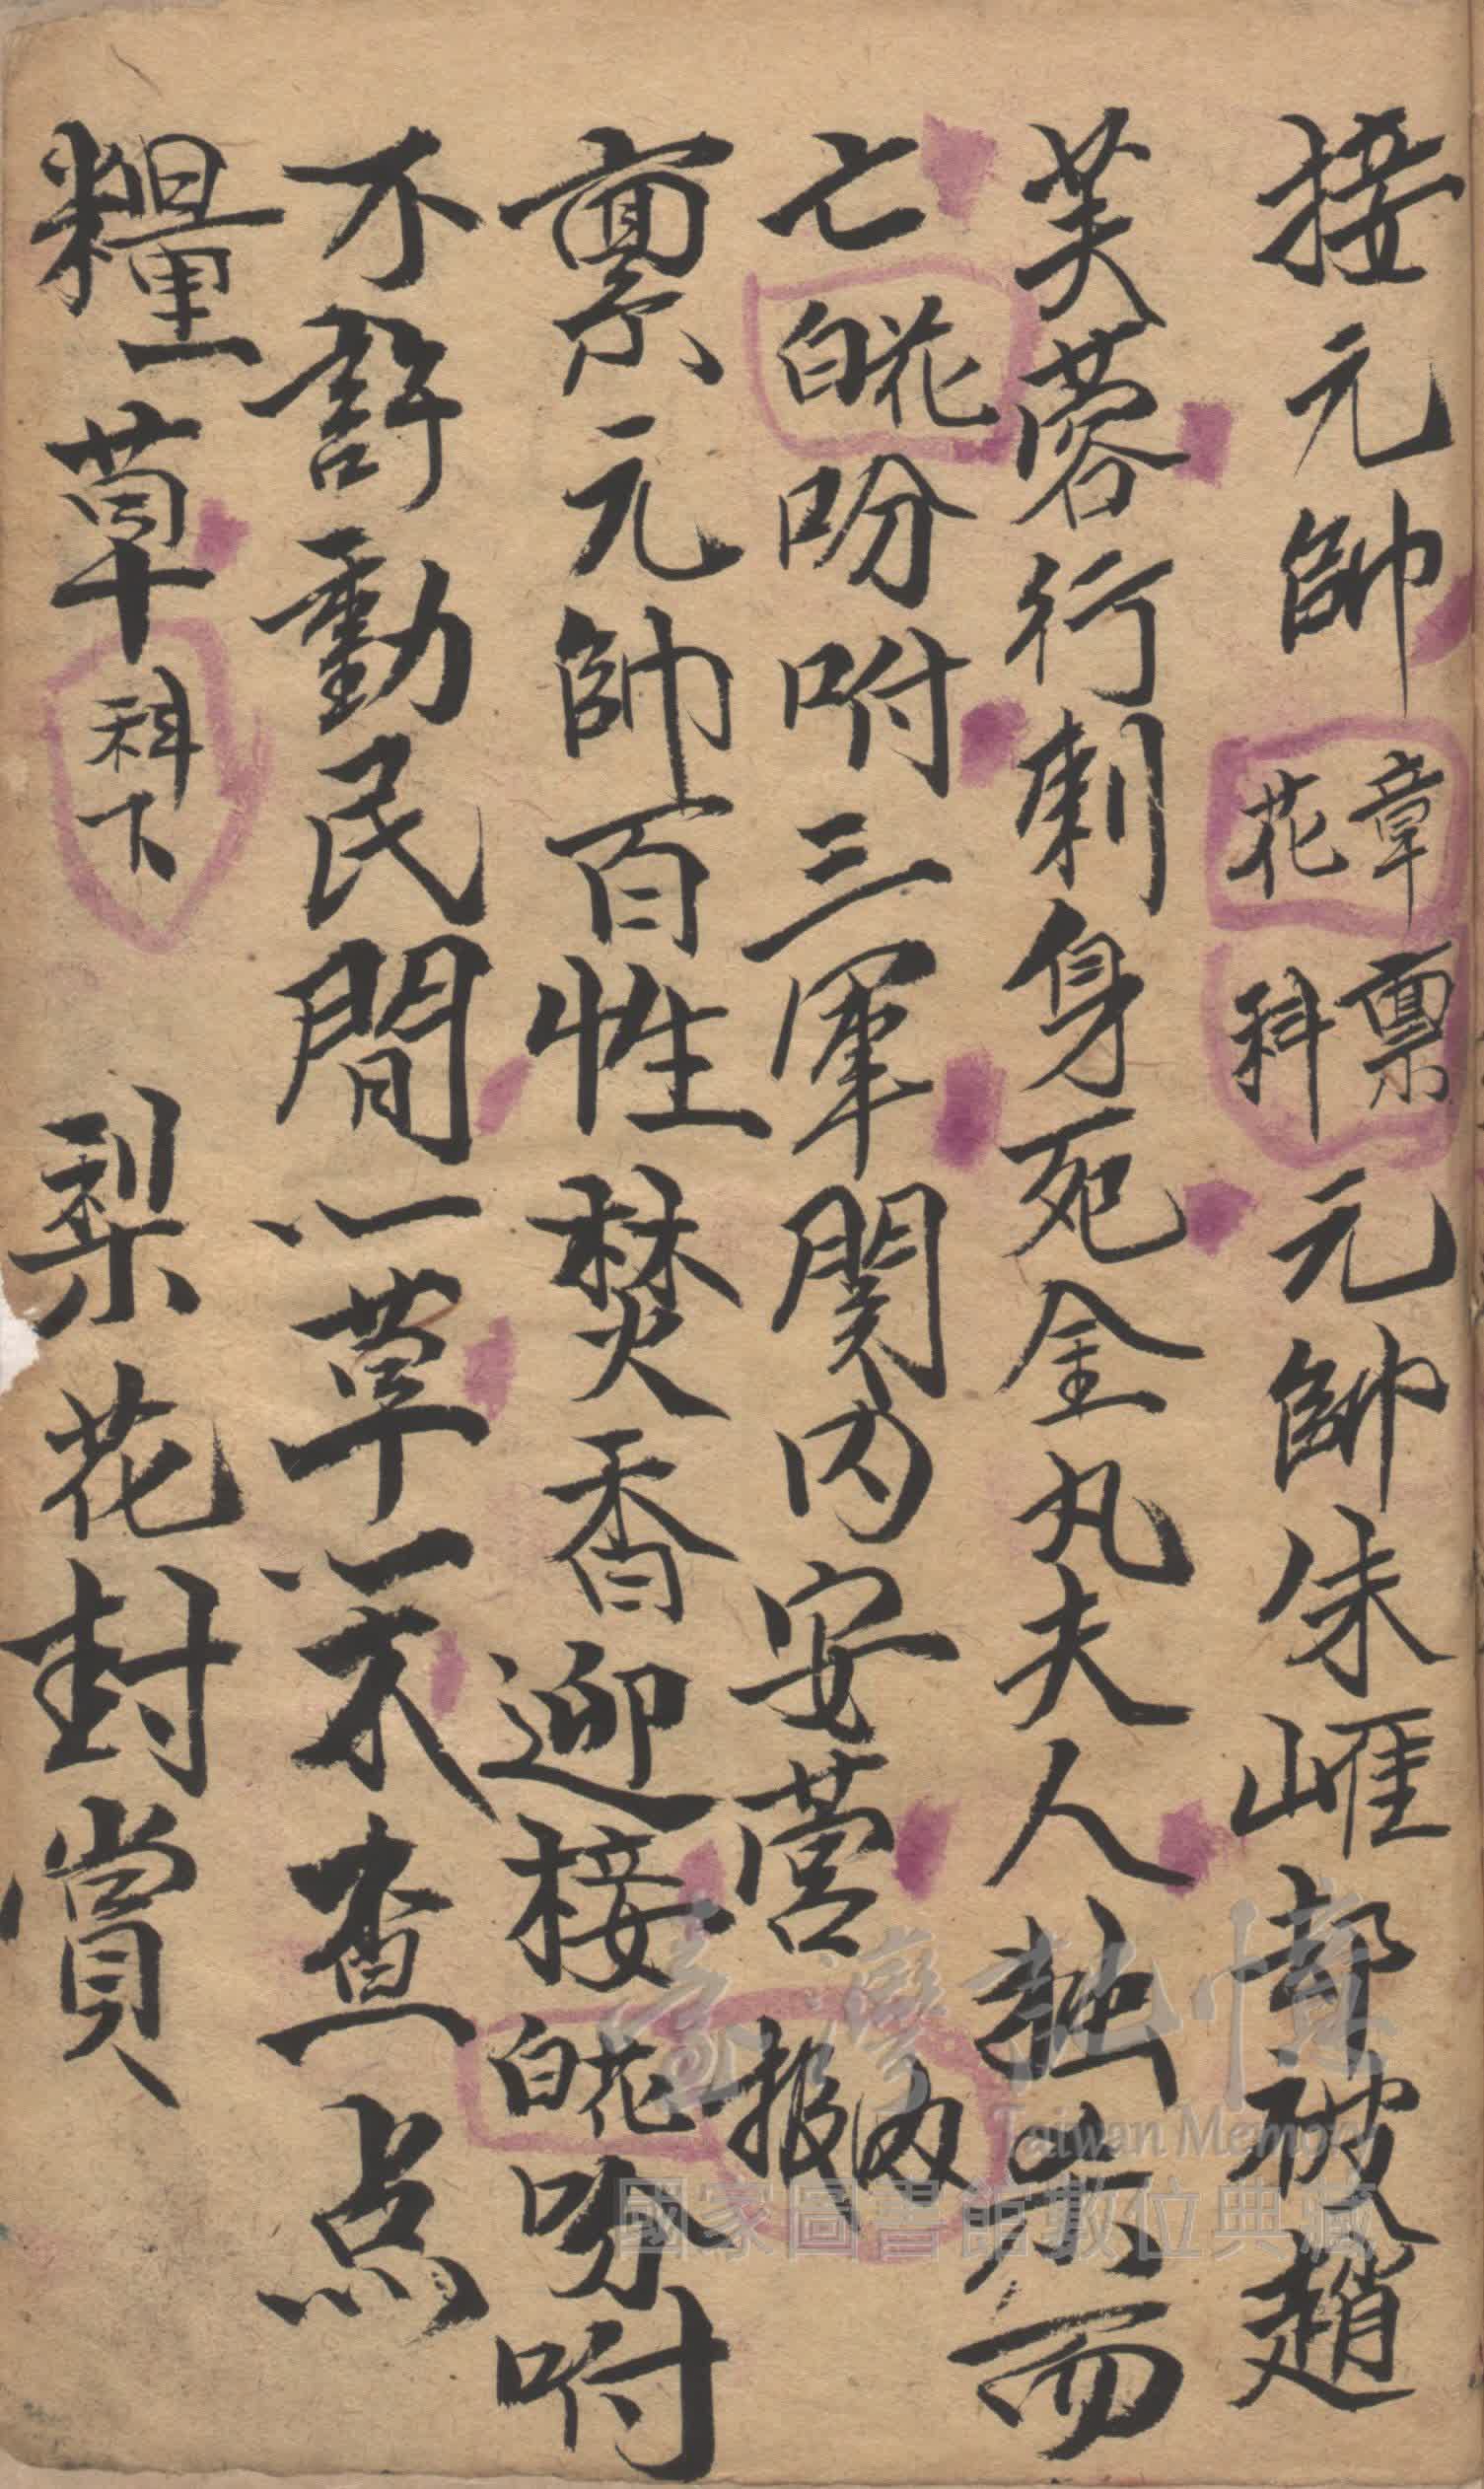 接元帥花章科禀元帥朱崕郡被趙
芙蓉行刺身死金丸夫人独步而
亡白花吩咐三軍関内安营报内
禀元帥百性焚香迎接白花吩咐
不許動民間一草一木查点
糧草科下 梨花封賞
臺灣記憶
Taiwan Memory
國家圖書館數位典藏